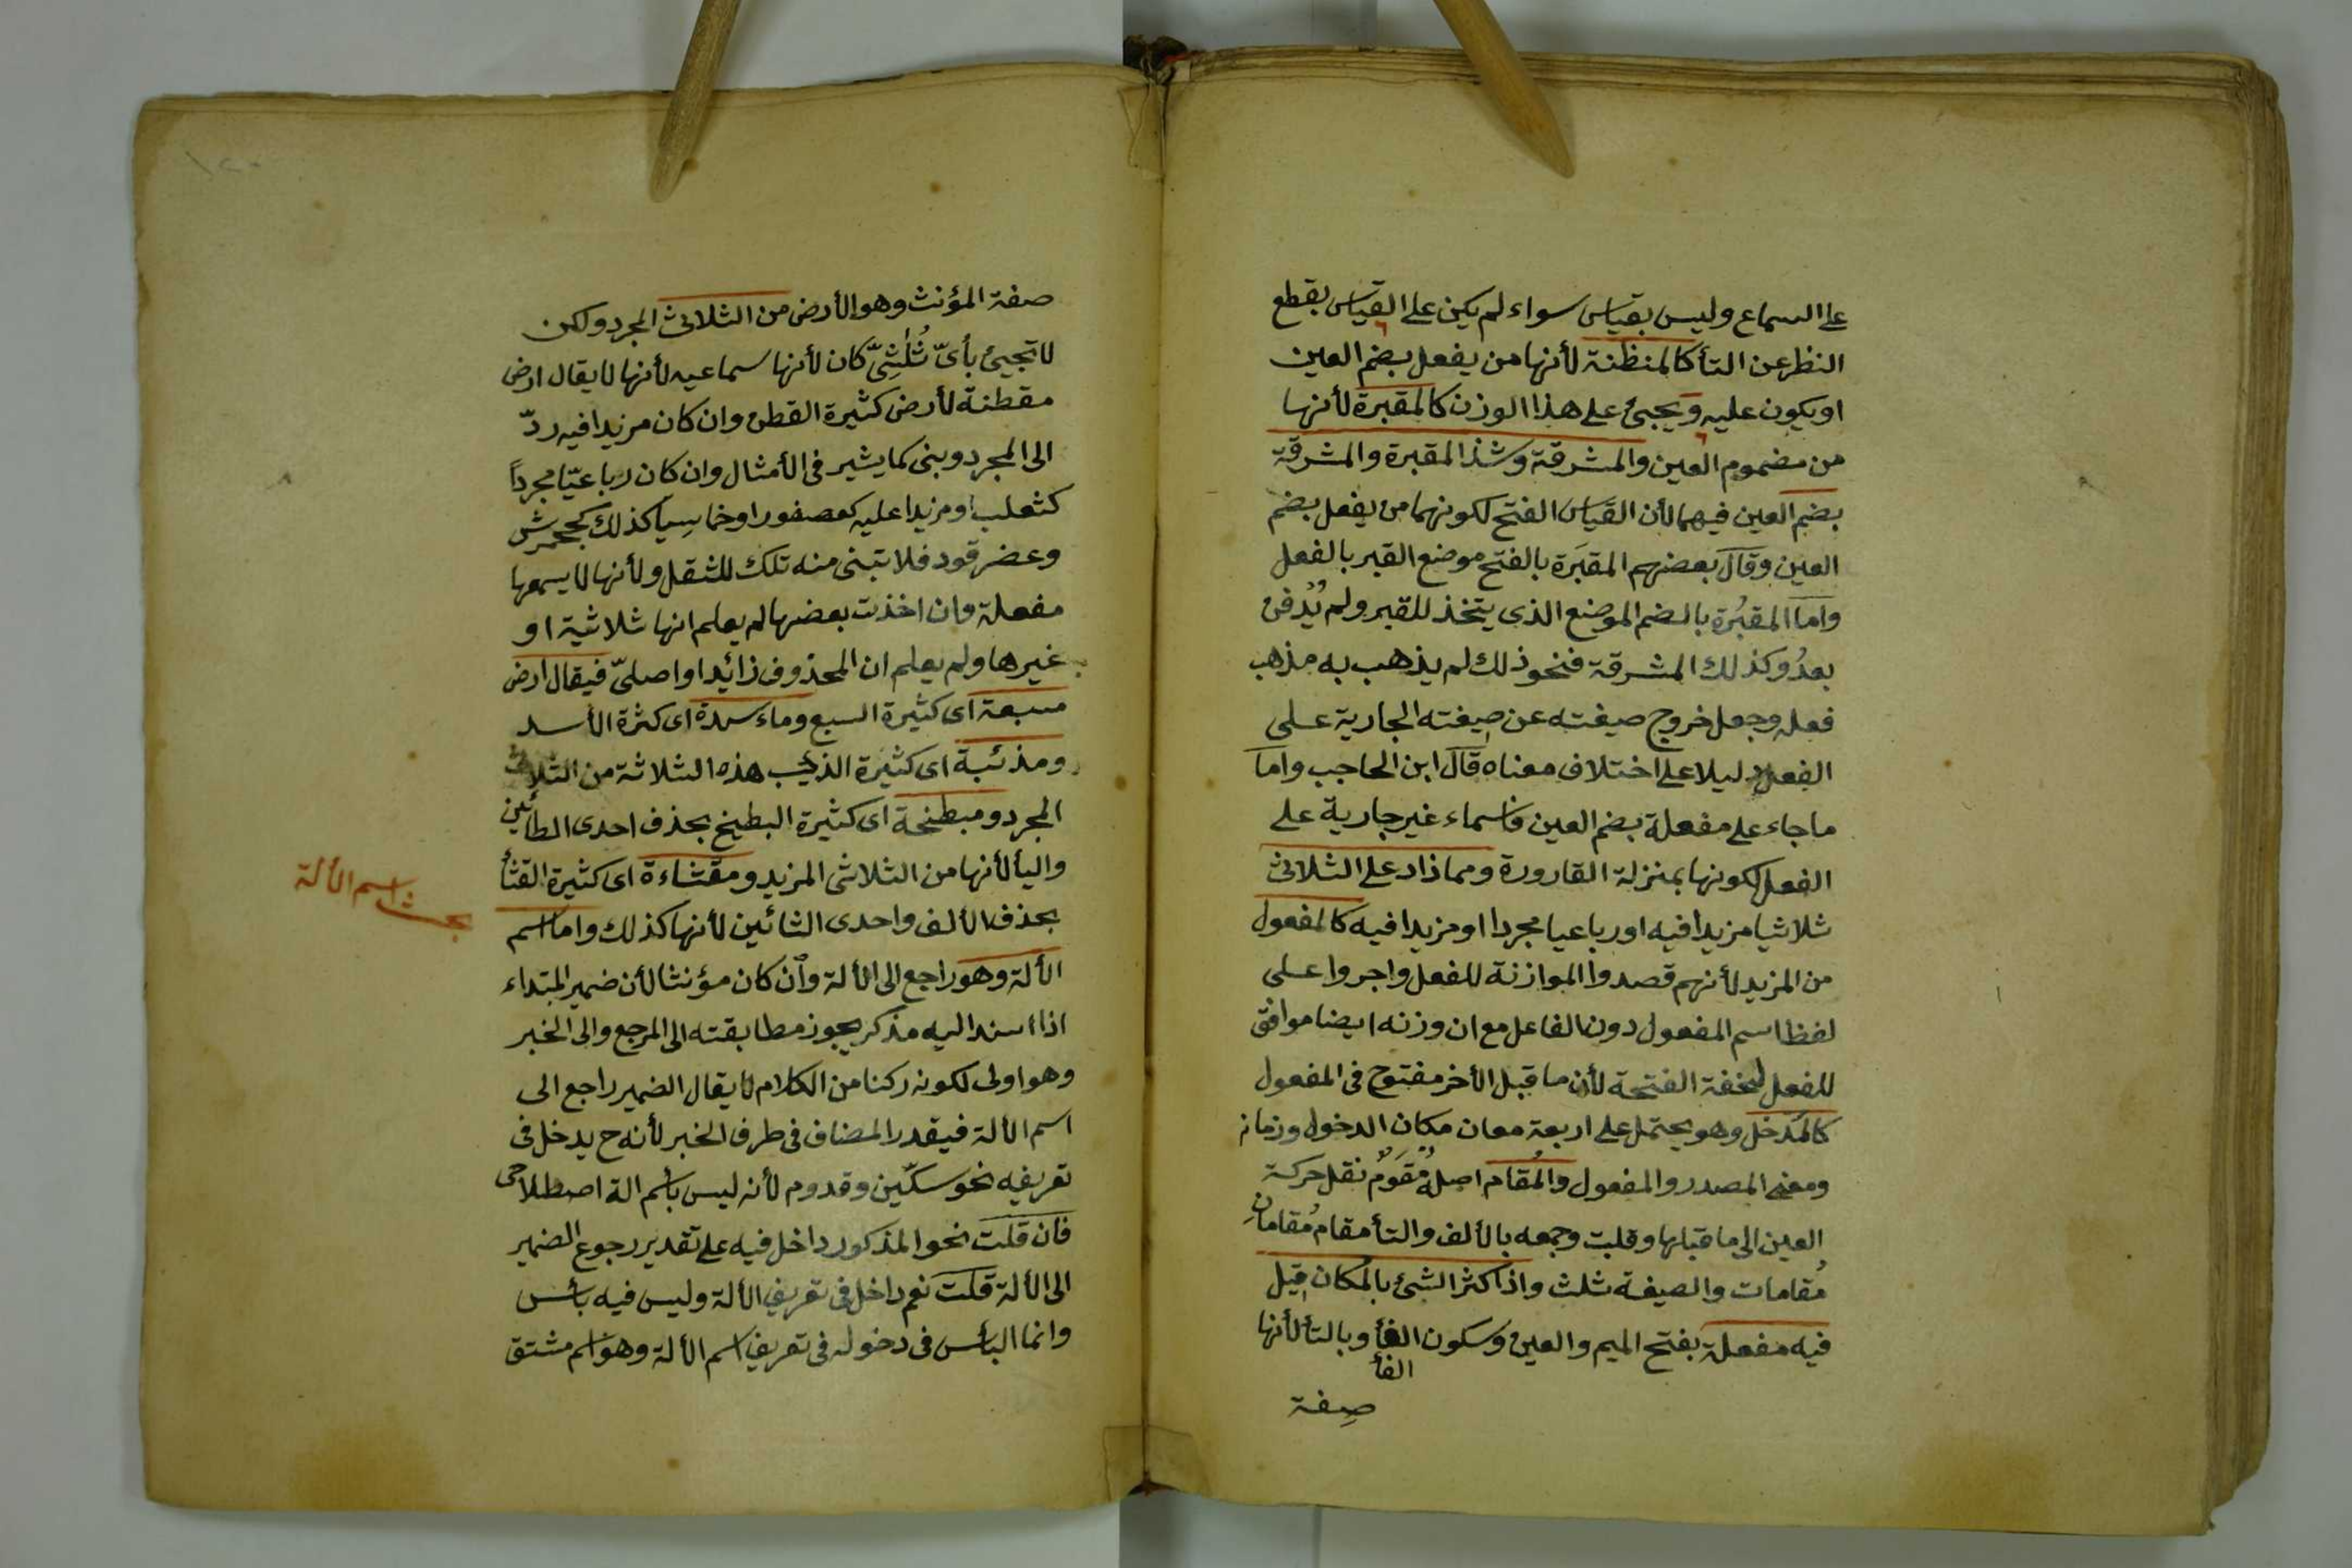 على السماع وليس بقياس سواء لم يكن على القياس بقطع
النظر عن التأ كالمنظنة لأنها من يفعل بضم العين
او يكون عليه ويجئ على هذا الوزن كالمقبرة لأنها
من مضموم العين والمشرقة وشذ المقبرة والمشرقة
بضم العين فيهما لأن القياس الفتح لكونهما من يفعل بضم
العين وقال بعضهم المقبَرة بالفتح موضع القبر بالفعل
واما المقبُرة بالضم الموضع الذى يتخذ للقبر ولم يُدفن
بعدُ وكذلك المشرقة فنحو ذلك لم يذهب به مذهب
فعله وجعل خروج صيغته عن صيغته الجارية على
الفعل دليلا على اختلاف معناه قال ابن الحاجب واما
ما جاء على مفعلة بضم العين فاسماء غير جارية على
الفعل لكونها بمنزلة القارورة ومما زاد على الثلاثى
ثلاثيا مزيدا فيه او رباعيا مجردا او مزيدا فيه كالمفعول
من المزيد لأنهم قصدوا الموازنة للمفعل واجروا على
لفظ اسم المفعول دون الفاعل مع ان وزنه ايضا موافق
للمفعل لخفة الفتحة لأن ما قبل الأخر مفتوح فى المفعول
كالمُدخل وهو يحتمل على اربعة معان مكان الدخول وزمانه
ومعنى المصدر والمفعول والمُقام اصله مُقوَمٌ نقل حركة
العين الى ما قبلها وقلبت وجمعه بالألف والتأ مقام مُقامانِ
مُقامات والصيغة ثلث واذا كثر الشئ بالمكان قيل
فيه مفعلة بفتح الميم والعين وسكون الفأ وبالتأ لأنها
الفأ
صفة
صفة المؤنث وهو الأرض من الثلاثى المجرد ولكن
لا تجيئ بأىّ ثُلٰثِىّ كان لأنها سماعيه لأنها لا يقال ارض
مقطنة لأرض كثيرة القطن وان كان مزيدا فيه ردّ
الى المجرد وبنى كما يشير فى الأمثال وان كان رباعيّا مجرداً
كثعلب او مزيدا عليه كعصفور او خماسيا كذلك كجحمرش
وعضرقود فلا تبنى منه تلك للثقل ولأنها لا يسعها
مفعلة وان اخذت بعضها لم يعلم انها ثلاثية او
غيرها ولم يعلم ان المحذوف زائدا او اصلىّ فيقال ارض
مسبعة اى كثيرة السبع ومأسدة اى كثرة الأسد
ومذئبة اى كثيرة الذئب هذه الثلاثة من الثلاثى
المجرد ومبطخة اى كثيرة البطيخ بحذف احدى الطائين
واليأ لأنها من الثلاثى المزيد ومقثاءة اى كثيرة القثأ
بحذف الألف واحدى الثائين لأنها كذلك واما اسم
بحث اسم الألة
الألة وهو راجع الى الألة وان كان مؤنثا لأن ضمير المبتداء
اذا اسند اليه مذكر يجوز مطابقته الى المرجع والى الخبر
وهو اولى لكونه ركنا من الكلام لا يقال الضمير راجع الى
اسم الألة فيقدر المضاف فى طرف الخبر لأنه ح يدخل فى
تعريفه نحو سكّين وقدوم لأنه ليس باسم الة اصطلاحى
فان قلت نحو المذكور داخل فيه على تقدير رجوع الضمير
الى الألة قلت نعم داخل فى تعريف الألة وليس فيه بأس
وانما البأس فى دخوله فى تعريف اسم الألة وهو اسم مشتق